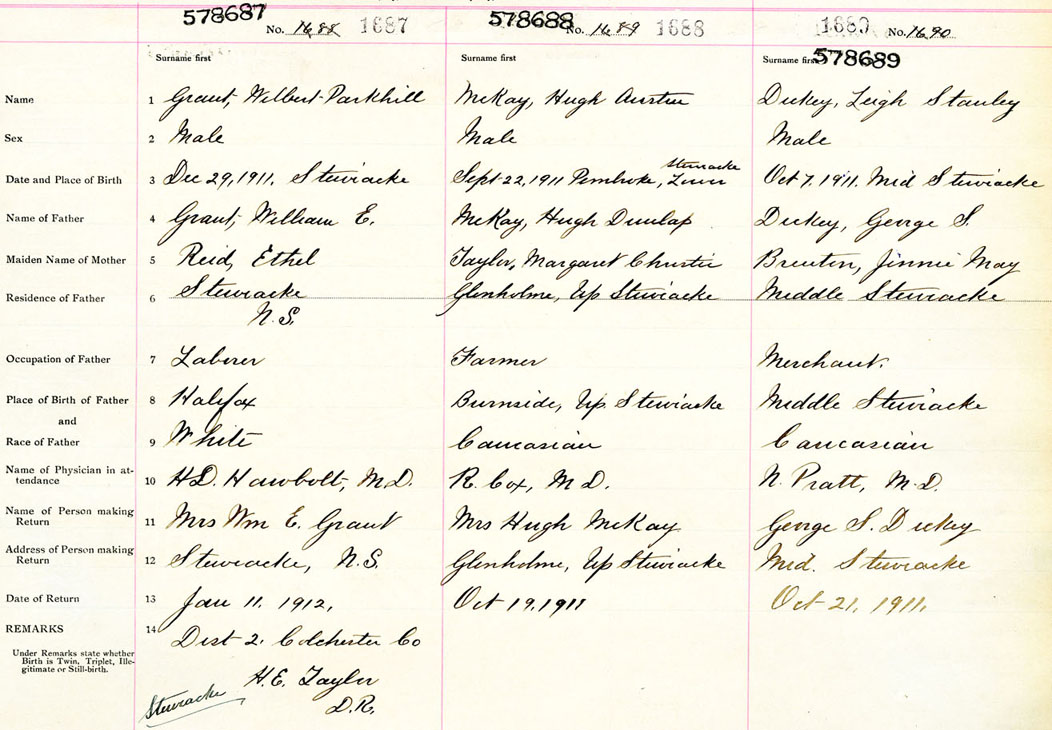 578687 578688 578689
No. 1688 1687 No. 1689 1688 1689 No. 1690
Surname first Surname first Surname first
Name 1 Grant, Wilbert Parkhill McKay, Hugh Austin Dickey, Leigh Stanley
Sex 2 Male Male Male
Stewiacke
Date and Place of Birth 3 Dec 29, 1911. Stewiacke Sept 22, 1911 Pembroke, Lower Oct 7. 1911. Mid Stewiacke
Name of Father 4 Grant, William E. McKay, Hugh Dunlap Dickey, George S.
Maiden Name of Mother 5 Reid, Ethel Taylor, Margaret Christie Brenton, Jinnie May
Residence of Father 6 Stewiacke Glenholme, Up Stewiacke Middle Stewiacke
N.S.
Occupation of Father 7 Laborer Farmer Merchant.
Place of Birth of Father 8 Halifax Burnside, Up. Stewiacke Middle Stewiacke
and
Race of Father 9 White Caucasian Caucasian
Name of Physician in at-
tendance 10 H.D. Hawbolt, M.D. R. Cox, M.D. N. Pratt, M.D.
Name of Person making
Return 11 Mrs Wm E. Grant Mrs Hugh McKay George S. Dickey
Address of Person making
Return 12 Stewiacke, N.S. Glenholme, Up Stewiacke Mid. Stewiacke
Date of Return 13 Jan 11. 1912. Oct 19, 1911 Oct 21, 1911.
REMARKS 14 Dist 2. Colchester Co
Under Remarks state whether
Birth is Twin, Triplet, Ille-
gitimate or Still-birth.
H.E. Taylor
Stewiacke D.R.